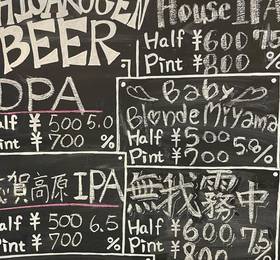 BEER
House IPA
Half ¥600 75
Pint ¥800 %
DPA
Half ¥500 5.0
Pint ¥700 %
Baby
Blonde Miyama
Half ¥500 5.0%
Pint ¥700
賀高原 IPA
Half ¥500 6.5
Pint ¥700 %
無我霧中
Half ¥600 7.5
Pint ¥800 %